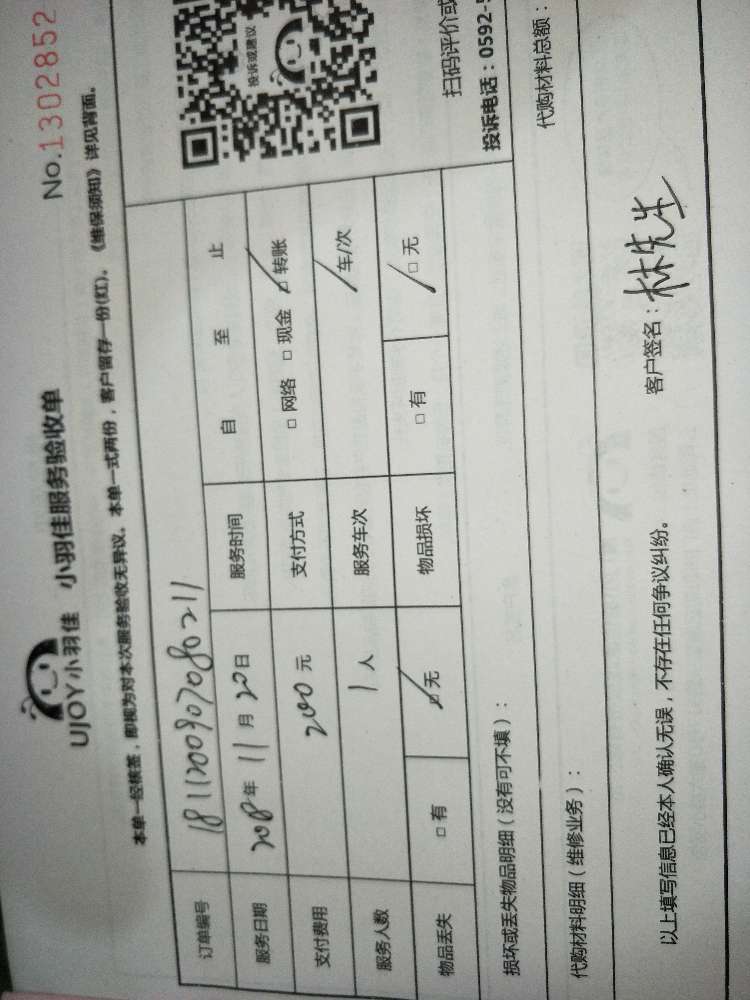 UJOY小羽佳 小羽佳服务验收单 No.1302852
本单一经核签，即视为对本次服务验收无异议。本单一式两份，客户留存一份(红)。《维保须知》详见背面。
订单编号 1811200907080211
服务日期 2018年11月20日 服务时间 自 至 止
支付费用 200元 支付方式 □网络 □现金 □转账
服务人数 1人 服务车次 /车/次
物品丢失 □有 □无 物品损坏 □有 □无
投诉或建议
扫码评价或
投诉电话：0592-5
损坏或丢失物品明细（没有可不填）：
代购材料明细（维修业务）： 代购材料总额：
以上填写信息已经本人确认无误，不存在任何争议纠纷。 客户签名：林先生